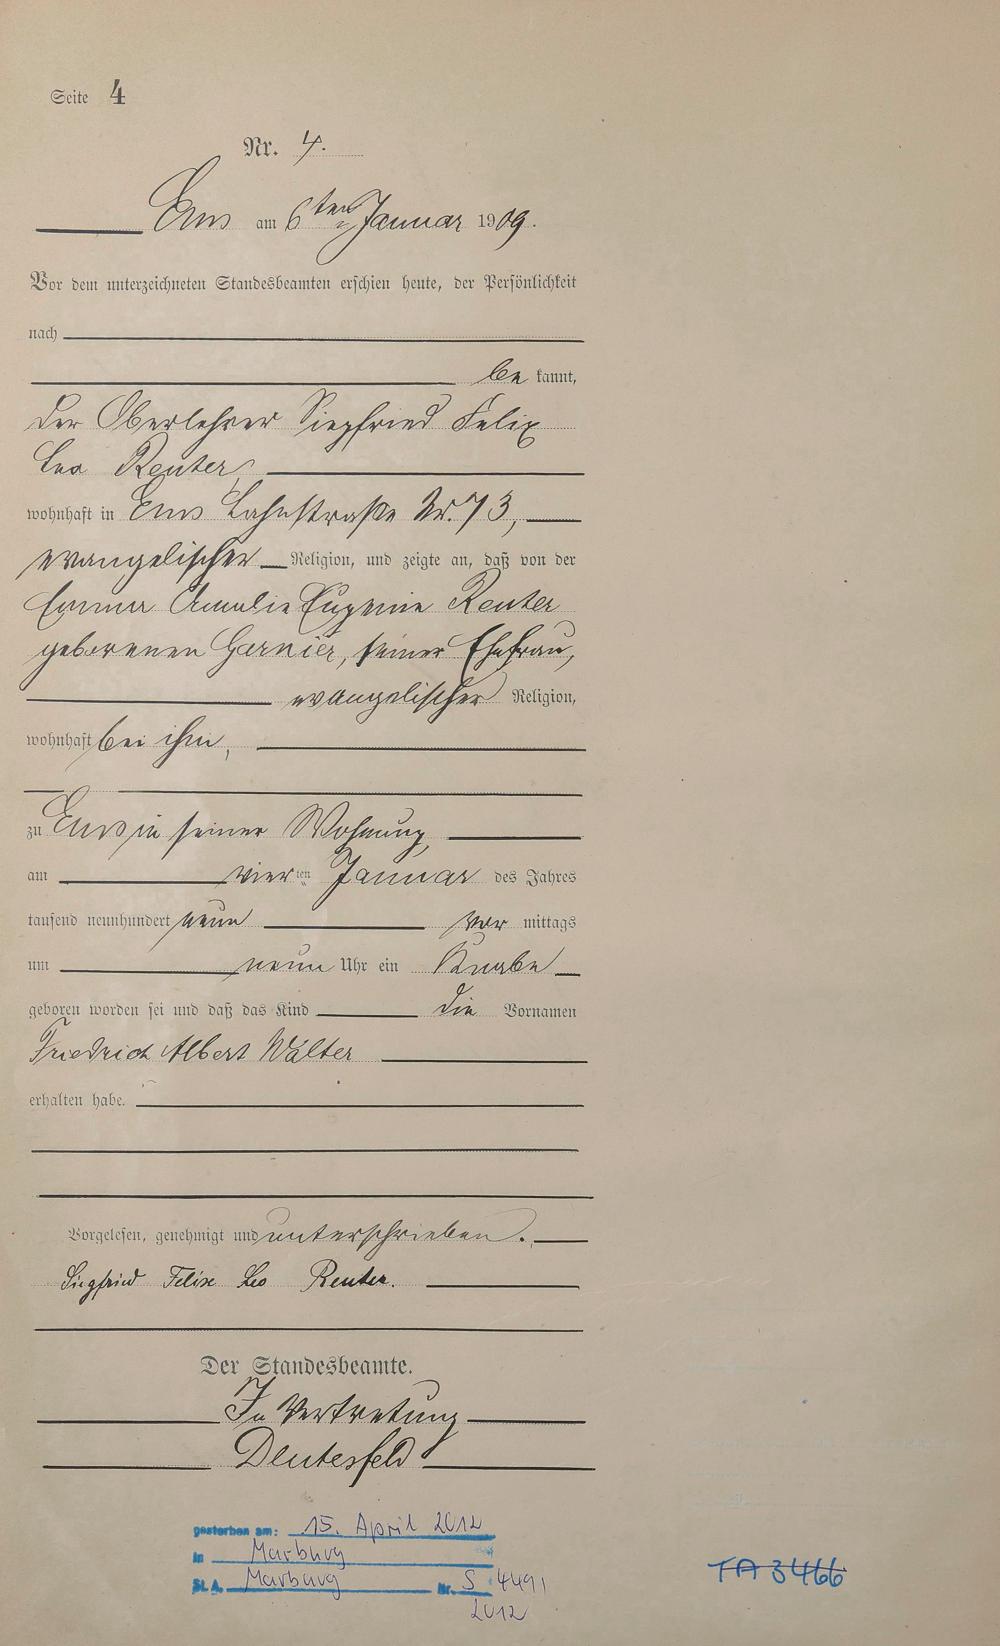 Seite 4
Nr. 4.
Ems am 6ten Januar 1909.
Vor dem unterzeichneten Standesbeamten erschien heute, der Persönlichkeit
nach
be kannt,
der Oberlehrer Siegfried Felix
Leo Reuter,
wohnhaft in Ems Lahnstraße Nr. 73,
evangelischer Religion, und zeigte an, daß von der
Emma Amalie Eugenie Reuter
geborenen Garnier, seiner Ehefrau,
evangelischer Religion,
wohnhaft bei ihm,
zu Ems in seiner Wohnung,
am vierten Januar des Jahres
tausend neunhundert neun vor mittags
um neun Uhr ein Knabe
geboren worden sei und daß das Kind die Vornamen
Friedrich Albert Walter
erhalten habe.
Vorgelesen, genehmigt und unterschrieben.
Siegfried Felix Leo Reuter.
Der Standesbeamte.
In Vertretung
gestorben am: 15. April 2012
in Marburg
St. A. Marburg Nr. S 4491
2012
TA 3466